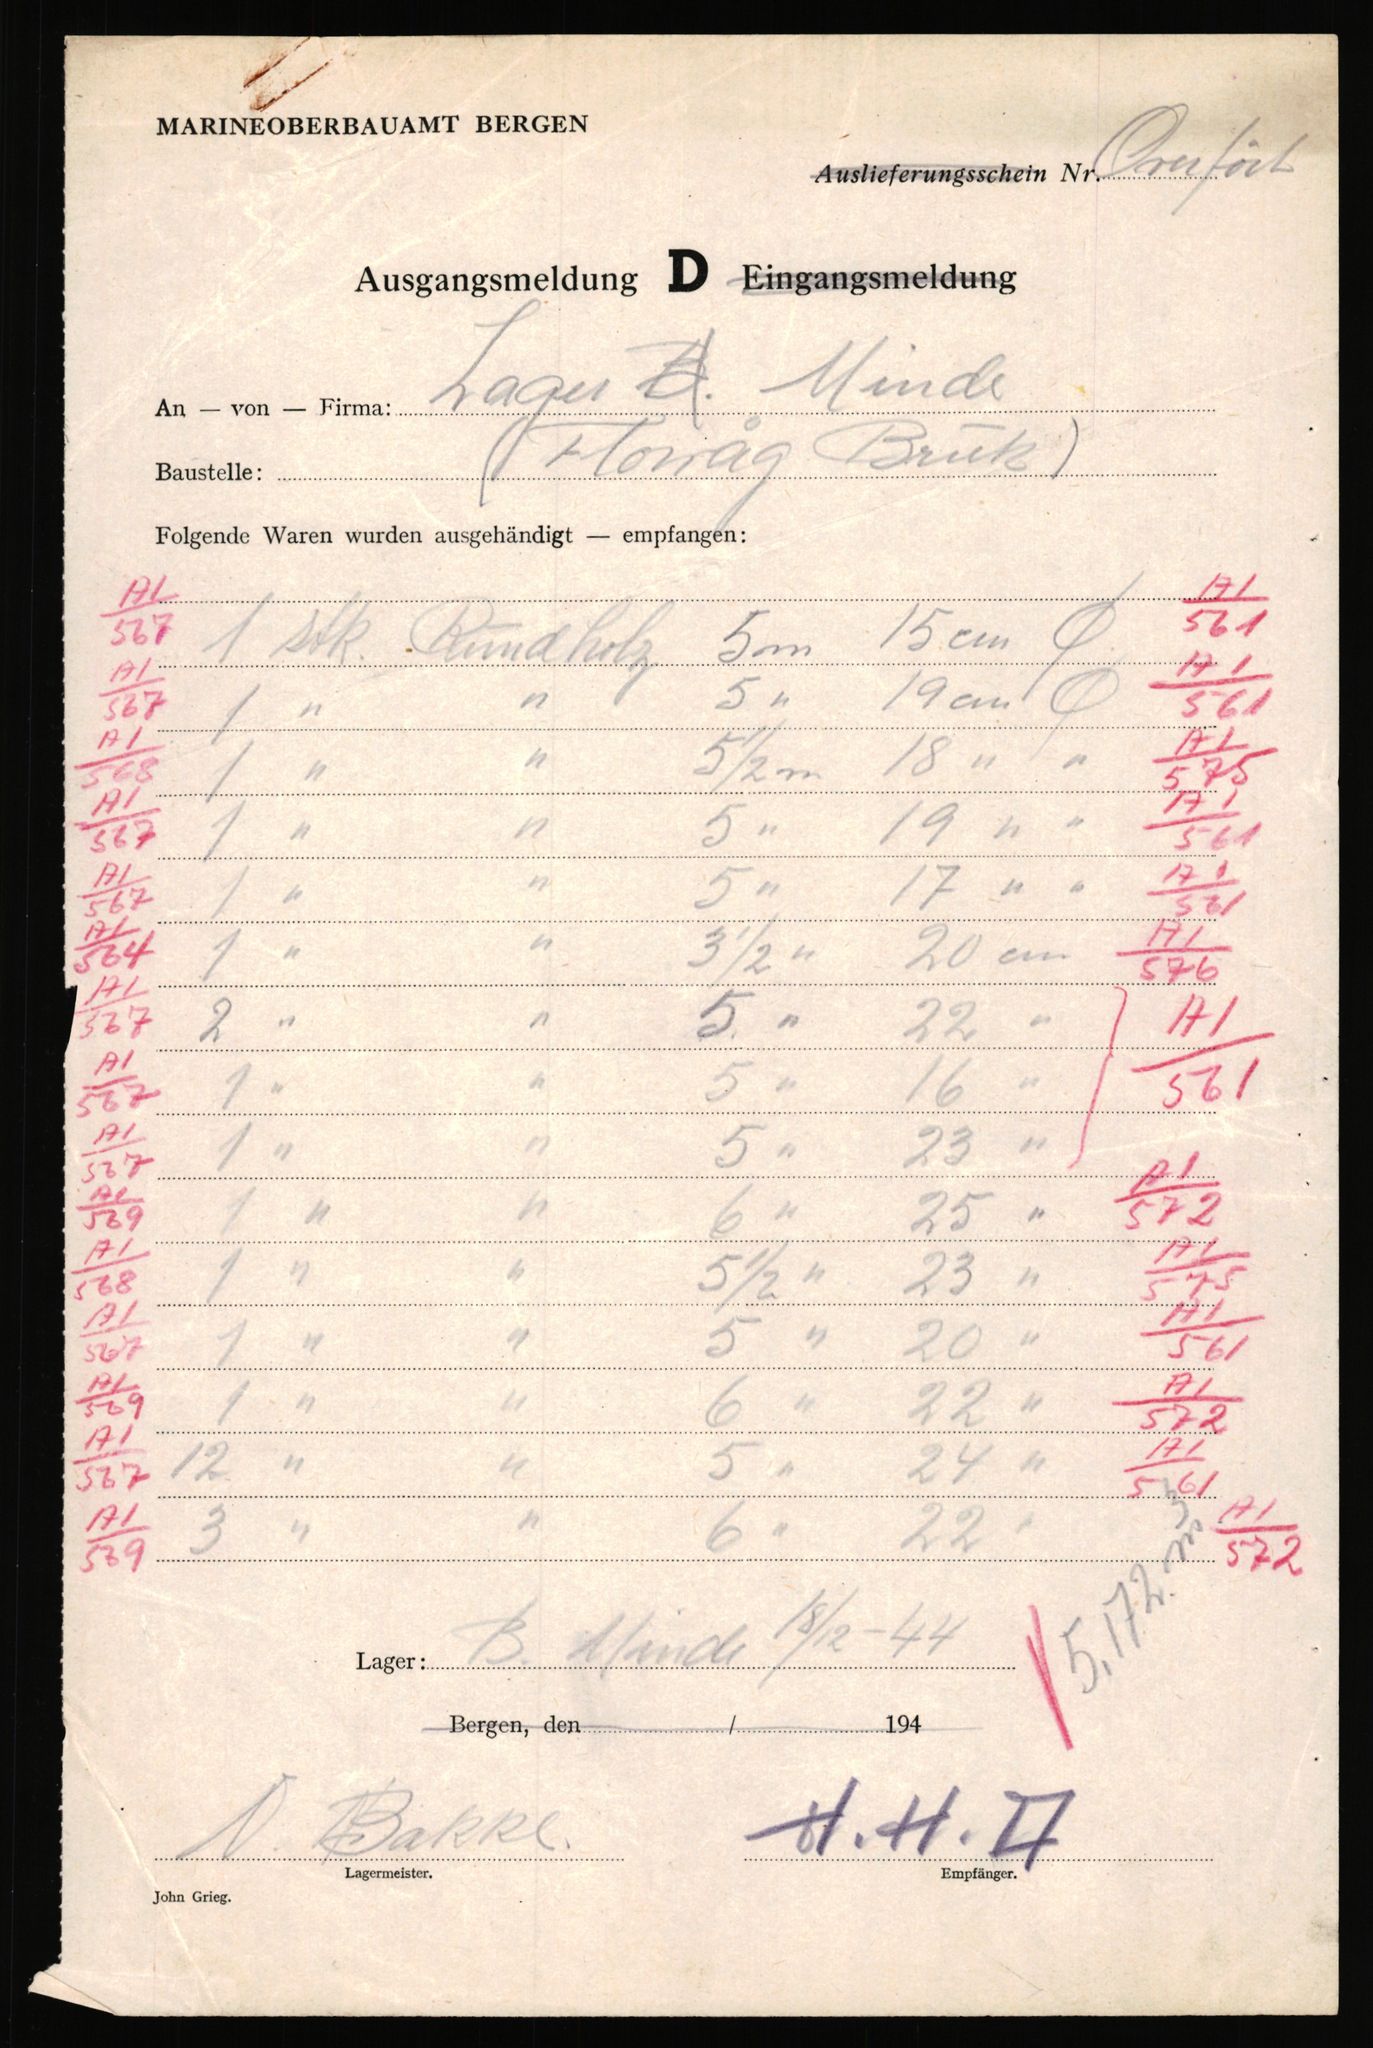 MARINEOBERBAUAMT BERGEN
Auslieferungsschein Nr. Overført
Ausgangsmeldung D Eingangsmeldung
An — von — Firma: Lager B. Minde
Baustelle: (Florvåg Bruk)
Folgende Waren wurden ausgehändigt — empfangen:
A1/567 1 stk. Rundholz 5 m 15 cm Ø A1/561
A1/567 1 " " 5 " 19 cm Ø A1/561
A1/568 1 " " 5 1/2 m 18 " " A1/575
A1/567 1 " " 5 " 19 " " A1/561
A1/567 1 " " 5 " 17 " " A1/561
A1/564 1 " " 3 1/2 " 20 cm A1/576
A1/567 2 " " 5. " 22 "
A1/567 1 " " 5 " 16 " A1/561
A1/567 1 " " 5 " 23 "
A1/569 1 " " 6 " 25 " A1/572
A1/568 1 " " 5 1/2 " 23 " A1/575
A1/567 1 " " 5 " 20 " A1/561
A1/569 1 " " 6 " 22 " A1/572
A1/567 12 " " 5 " 24 " A1/561
A1/569 3 " " 6 " 22 " A1/572
5,172 m³
Lager: B. Minde 18/12-44
Bergen, den / 194
N. Bakke. H.H.
Lagermeister. Empfänger.
John Grieg.